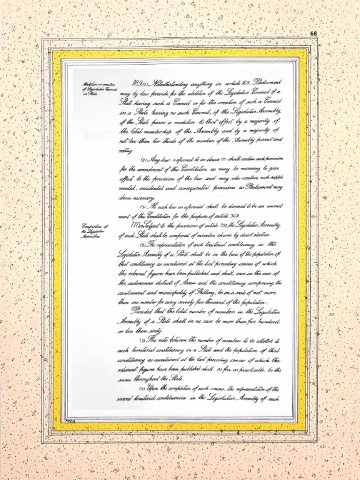 68
Abolition or creation
of Legislative Councils
in States.
169.(1) Notwithstanding anything in article 168, Parliament
may by law provide for the abolition of the Legislative Council of a
State having such a Council or for the creation of such a Council
in a State having no such Council, if the Legislative Assembly
of the State passes a resolution to that effect by a majority of
the total membership of the Assembly and by a majority of
not less than two-thirds of the members of the Assembly present and
voting.
(2) Any law referred to in clause (1) shall contain such provisions
for the amendment of this Constitution as may be necessary to give
effect to the provisions of the law and may also contain such supple
mental, incidental and consequential provisions as Parliament may
deem necessary.
(3) No such law as aforesaid shall be deemed to be an amend
ment of this Constitution for the purposes of article 368.
Composition of
the Legislative
Assemblies.
170.(1) Subject to the provisions of article 333, the Legislative Assembly
of each State shall be composed of members chosen by direct election.
(2) The representation of each territorial constituency in the
Legislative Assembly of a State shall be on the basis of the population of
that constituency as ascertained at the last preceding census of which
the relevant figures have been published and shall, save in the case of
the autonomous districts of Assam and the constituency comprising the
cantonment and municipality of Shillong, be on a scale of not more
than one member for every seventy-five thousand of the population:
Provided that the total number of members in the Legislative
Assembly of a State shall in no case be more than five hundred
or less than sixty.
(3) The ratio between the number of members to be allotted to
each territorial constituency in a State and the population of that
constituency as ascertained at the last preceding census of which the
relevant figures have been published shall, so far as practicable, be the
same throughout the State.
(4) Upon the completion of each census, the representation of the
several territorial constituencies in the Legislative Assembly of each